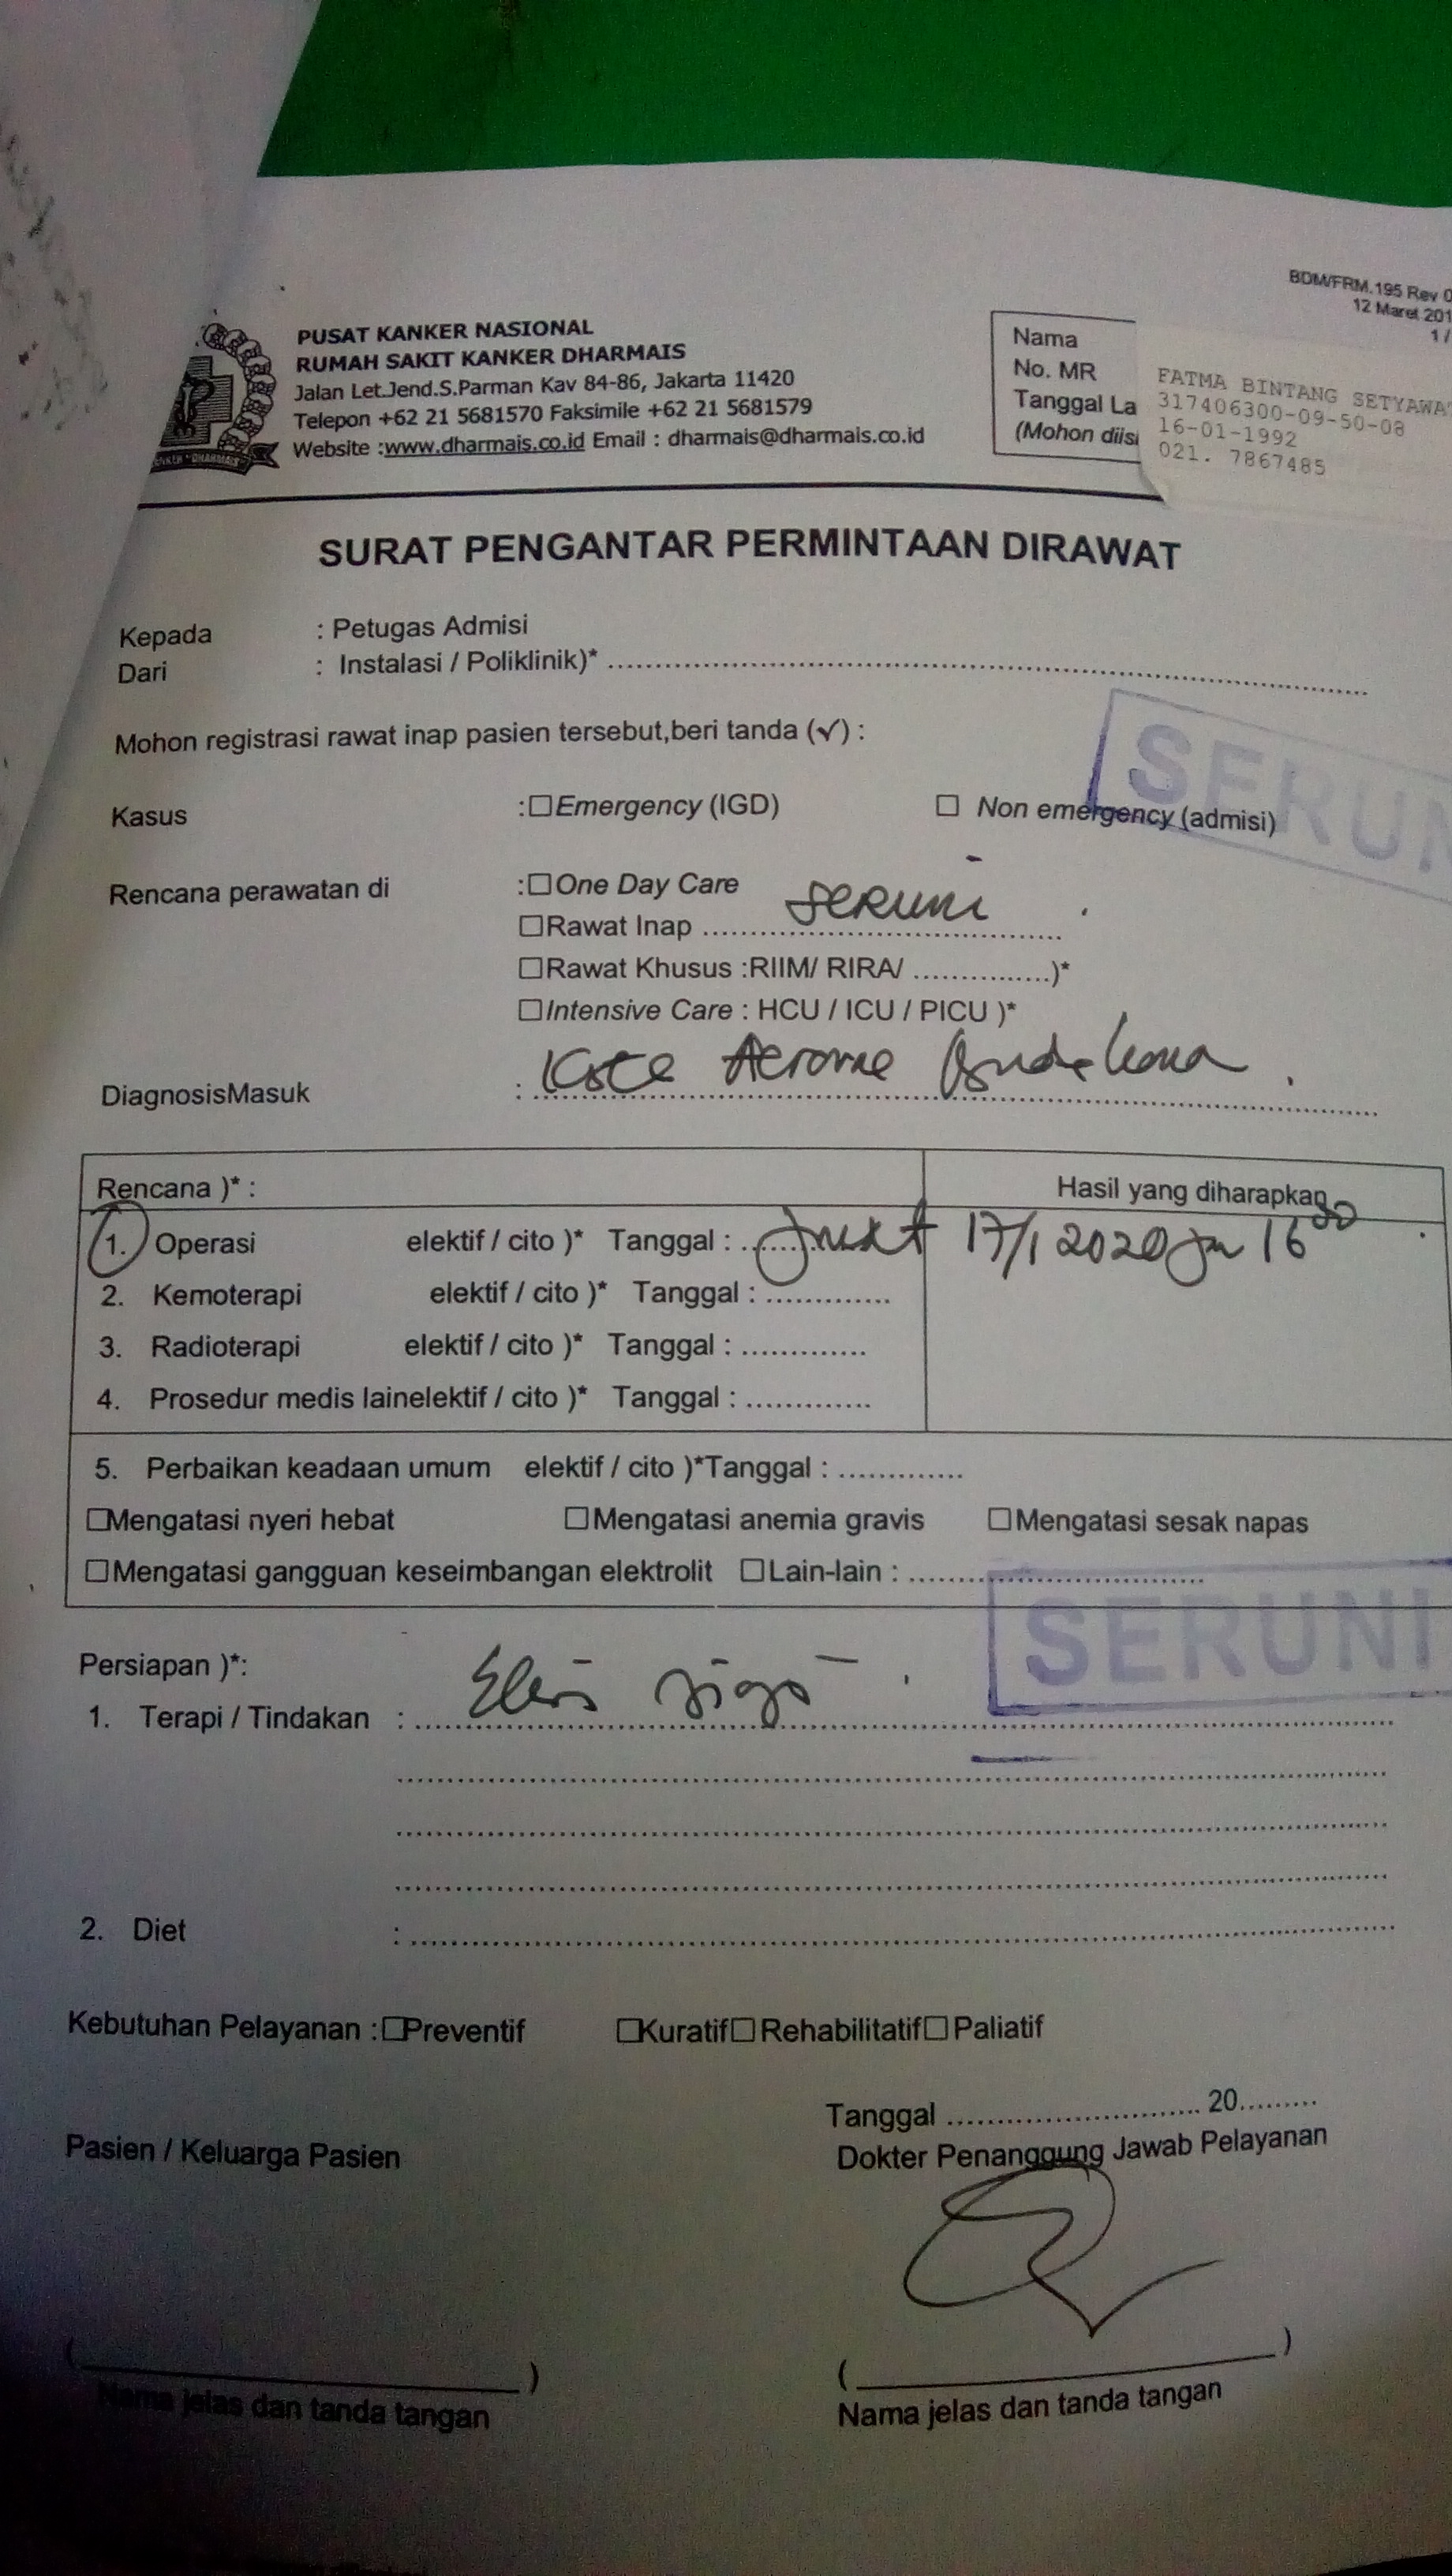 BDM/FRM.195 Rev 0
12 Maret 201
1 /
PUSAT KANKER NASIONAL
RUMAH SAKIT KANKER DHARMAIS
Jalan Let.Jend.S.Parman Kav 84-86, Jakarta 11420
Telepon +62 21 5681570 Faksimile +62 21 5681579
Website :www.dharmais.co.id Email : dharmais@dharmais.co.id
Nama
No. MR
Tanggal La
(Mohon diisi
FATMA BINTANG SETYAWA
317406300-09-50-08
16-01-1992
021. 7867485
SURAT PENGANTAR PERMINTAAN DIRAWAT
Kepada : Petugas Admisi
Dari : Instalasi / Poliklinik)* ........
Mohon registrasi rawat inap pasien tersebut,beri tanda (√) :
SERUN
Kasus :☐Emergency (IGD) ☐ Non emergency (admisi)
Rencana perawatan di :☐One Day Care
☐Rawat Inap ........ Seruni
☐Rawat Khusus :RIIM/ RIRA/ ...............)*
☐Intensive Care : HCU / ICU / PICU )*
DiagnosisMasuk :
Rencana )* : Hasil yang diharapkan
1. Operasi elektif / cito )* Tanggal : Jumat 17/1 2020 jm 16 00
2. Kemoterapi elektif / cito )* Tanggal : .............
3. Radioterapi elektif / cito )* Tanggal : .............
4. Prosedur medis lainelektif / cito )* Tanggal : .............
5. Perbaikan keadaan umum elektif / cito )*Tanggal : .............
☐Mengatasi nyeri hebat ☐Mengatasi anemia gravis ☐Mengatasi sesak napas
☐Mengatasi gangguan keseimbangan elektrolit ☐Lain-lain : ........
SERUNI
Persiapan )*:
1. Terapi / Tindakan :
2. Diet :
Kebutuhan Pelayanan :☐Preventif ☐Kuratif☐ Rehabilitatif☐ Paliatif
Tanggal ............................ 20.........
Pasien / Keluarga Pasien Dokter Penanggung Jawab Pelayanan
( ) ( )
Nama jelas dan tanda tangan Nama jelas dan tanda tangan